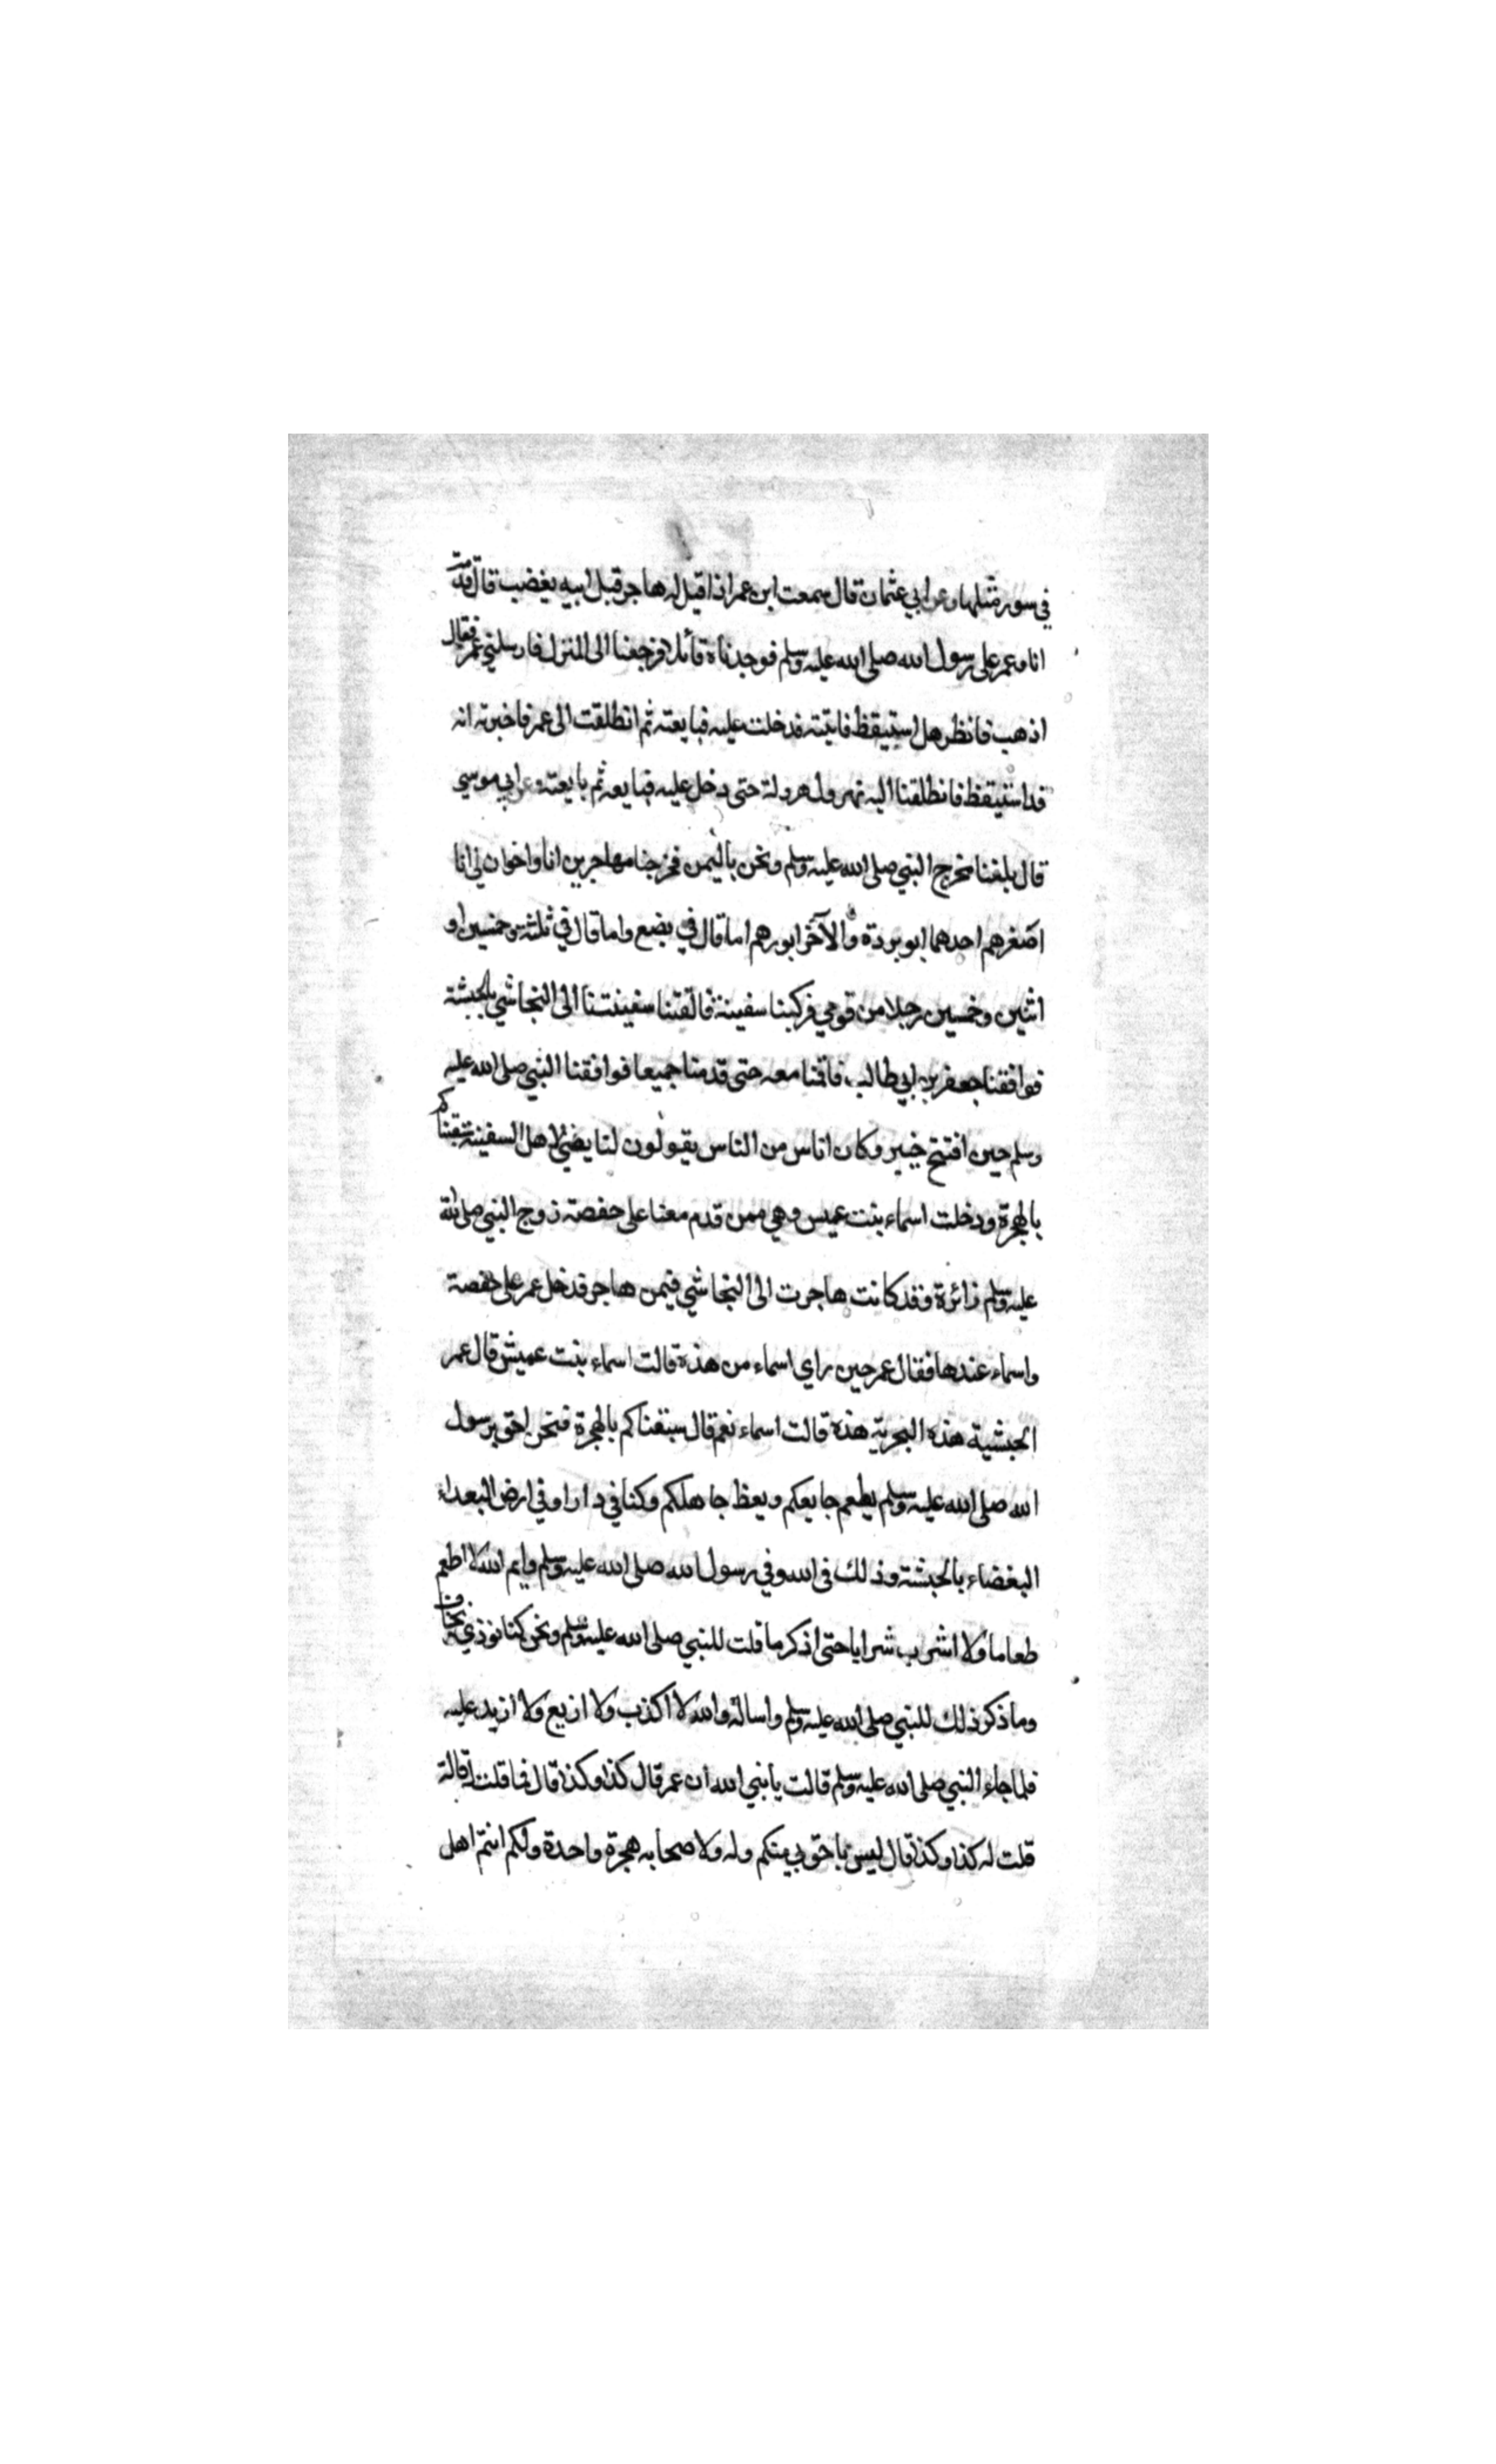 في سور مثلها وعن ابي عثمان قال سمعت ابن عمر اذا قيل له هاجر قبل ابيه يغضب قال قدمت
انا وعمر على رسول الله صلى الله عليه وسلم فوجدناه قائلا فرجعنا الى المنزل فارسلني عمر فقال
اذهب فانظر هل استيقظ فاتيته فدخلت عليه فبايعته ثم انطلقت الى عمر فاخبرته انه
قد استيقظ فانطلقنا اليه نهرول هرولة حتى دخل عليه فبايعه ثم بايعته عن ابي موسي
قال بلغنا مخرج النبي صلى الله عليه وسلم ونحن باليمن فخرجنا مهاجرين انا واخوان لي انا
اصغرهم احدهما ابو بردة والآخر ابورهم اما قال في بضع واما قال في ثلثة وخمسين او
اثنين وخمسين رجلا من قومي فركبنا سفينة فالقتنا سفينتنا الى النجاشي بالحبشة
فوافقنا جعفر بن ابي طالب فاقمنا معه حتى قدمنا جميعا فوافقنا النبي صلى الله عليه
وسلم حين افتتح خيبر وكان اناس من الناس يقولون لنا يعني لاهل السفينة سبقناكم
بالهجرة ودخلت اسماء بنت عميس وهي ممن قدم معنا على حفصة زوج النبي صلى الله
عليه وسلم زائرة وقد كانت هاجرت الى النجاشي فيمن هاجر فدخل عمر على حفصة
واسماء عندها فقال عمر حين راي اسماء من هذه قالت اسماء بنت عميس قال عمر
الحبشية هذه البحرية هذه قالت اسماء نعم قال سبقناكم بالهجرة فنحن احق برسول
الله صلى الله عليه وسلم يطعم جايعكم ويعظ جاهلكم وكنا في دار او في ارض البعداء
البغضاء بالحبشة وذلك في الله وفي رسول الله صلى الله عليه وسلم وايم الله لا اطعم
طعاما ولا اشرب شرابا حتى اذكر ما قلت للنبي صلى الله عليه وسلم ونحن كنا نوذي ونخاف
وما ذكر ذلك للنبي صلى الله عليه وسلم واساله والله لا اكذب ولا ازيغ ولا ازيد عليه
فلما جاء النبي صلى الله عليه وسلم قالت يا نبي الله ان عمر قال كذا وكذا قال فما قلت له قالت
قلت له كذا وكذا قال ليس باحق بي منكم وله ولاصحابه هجرة واحدة ولكم انتم اهل